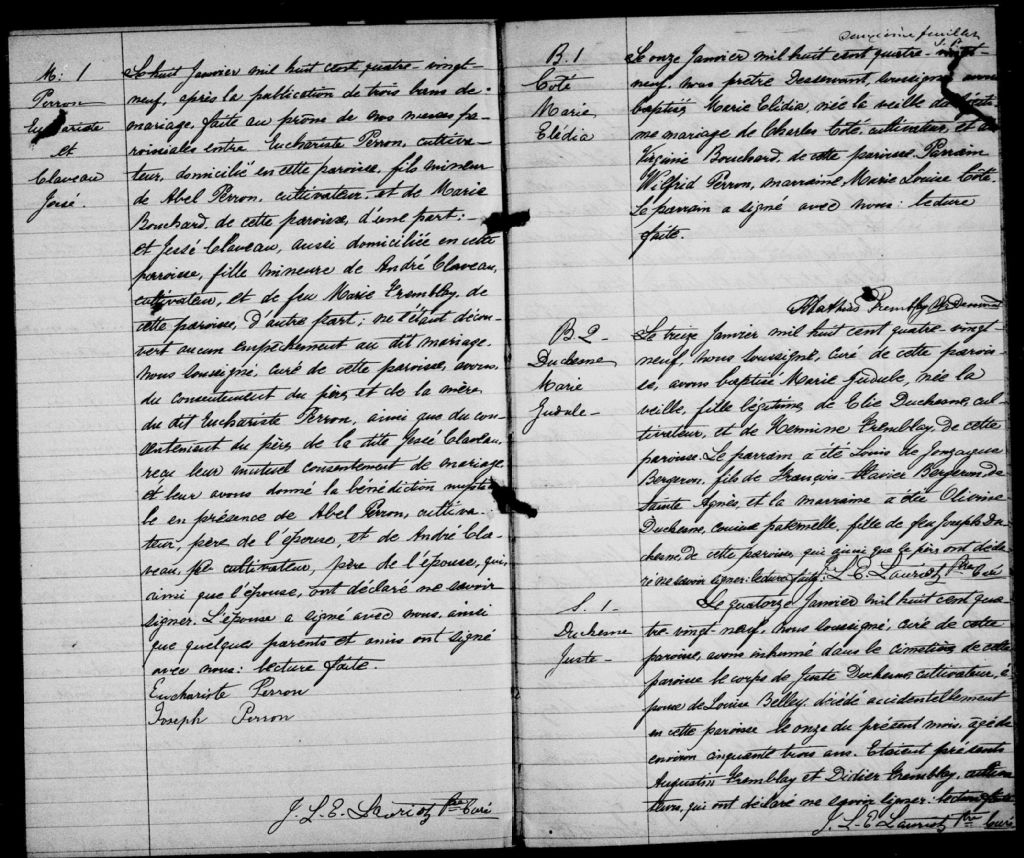 M: 1
Perron
Euchariste
et
Claveau
Jessé.
Le huit Janvier mil huit cent quatre-vingt-
neuf, après la publication de trois bans de
mariage, faite au prône de nos messes pa-
roissiales entre Euchariste Perron, cultiva-
teur, domicilié en cette paroisse, fils mineur
de Abel Perron, cultivateur, et de Marie
Bouchard, de cette paroisse, d'une part;
et Jessé Claveau, aussi domiciliée en cette
paroisse, fille mineure de André Claveau,
cultivateur, et de feu Marie Tremblay, de
cette paroisse, d'autre part; ne s'étant décou-
vert aucun empêchement au dit mariage,
nous soussigné, curé de cette paroisse, avons,
du consentement du père et de la mère
du dit Euchariste Perron, ainsi que du con-
sentement du père de la dite Jessé Claveau,
reçu leur mutuel consentement de mariage,
et leur avons donné la bénédiction nuptia-
le en présence de Abel Perron, cultiva-
teur, père de l'épouse, et de André Cla-
veau, cultivateur, père de l'épouse, qui,
ainsi que l'épouse, ont déclaré ne savoir
signer. L'épouse a signé avec nous, ainsi
que quelques parents et amis ont signé
avec nous: lecture faite.
Euchariste Perron
Joseph Perron
J. L. E. Lauriot, Ptre Curé
deuxième feuillet
B. 1
Coté
Marie
Elidia
Le onze Janvier mil huit cent quatre-vingt-
neuf, nous prêtre Desservant, soussigné, avons
baptisé Marie Elidia, née la veille du légiti-
me mariage de Charles Coté, cultivateur, et de
Virginie Bouchard, de cette paroisse. Parrain
Wilfrid Perron, marraine Marie Louise Coté.
Le parrain a signé avec nous: lecture
faite.
Mathias Tremblay
B 2-
Duchesne
Marie
Judule-
Le treize Janvier mil huit cent quatre-vingt-
neuf, nous soussigné, curé de cette parois-
se, avons baptisé Marie Judule, née la
veille, fille légitime de Elie Duchesne, cul-
tivateur, et de Hermine Tremblay, de cette
paroisse. Le parrain a été Louis de Gonzague
Bergeron, fils de François Xavier Bergeron de
Sainte Agnès, et la marraine a été Olivine
Duchesne, cousine paternelle, fille de feu Joseph Du-
chesne, de cette paroisse, qui ainsi que le père ont décla-
ré ne savoir signer: lecture faite. J. L. E. Lauriot, Ptre Curé
S. 1-
Duchesne
Juste-
Le quatorze Janvier mil huit cent qua-
tre-vingt-neuf, nous soussigné, curé de cette
paroisse, avons inhumé dans le cimetière de cette
paroisse le corps de Juste Duchesne, cultivateur, é-
poux de Louise Belley, décédé accidentellement
en cette paroisse le onze du présent mois, agé de
environ cinquante trois ans. Etaient présents
Augustin Tremblay et Didier Tremblay, cultiva-
teurs, qui ont déclaré ne savoir signer: lecture faite
J. L. E. Lauriot, Ptre Curé